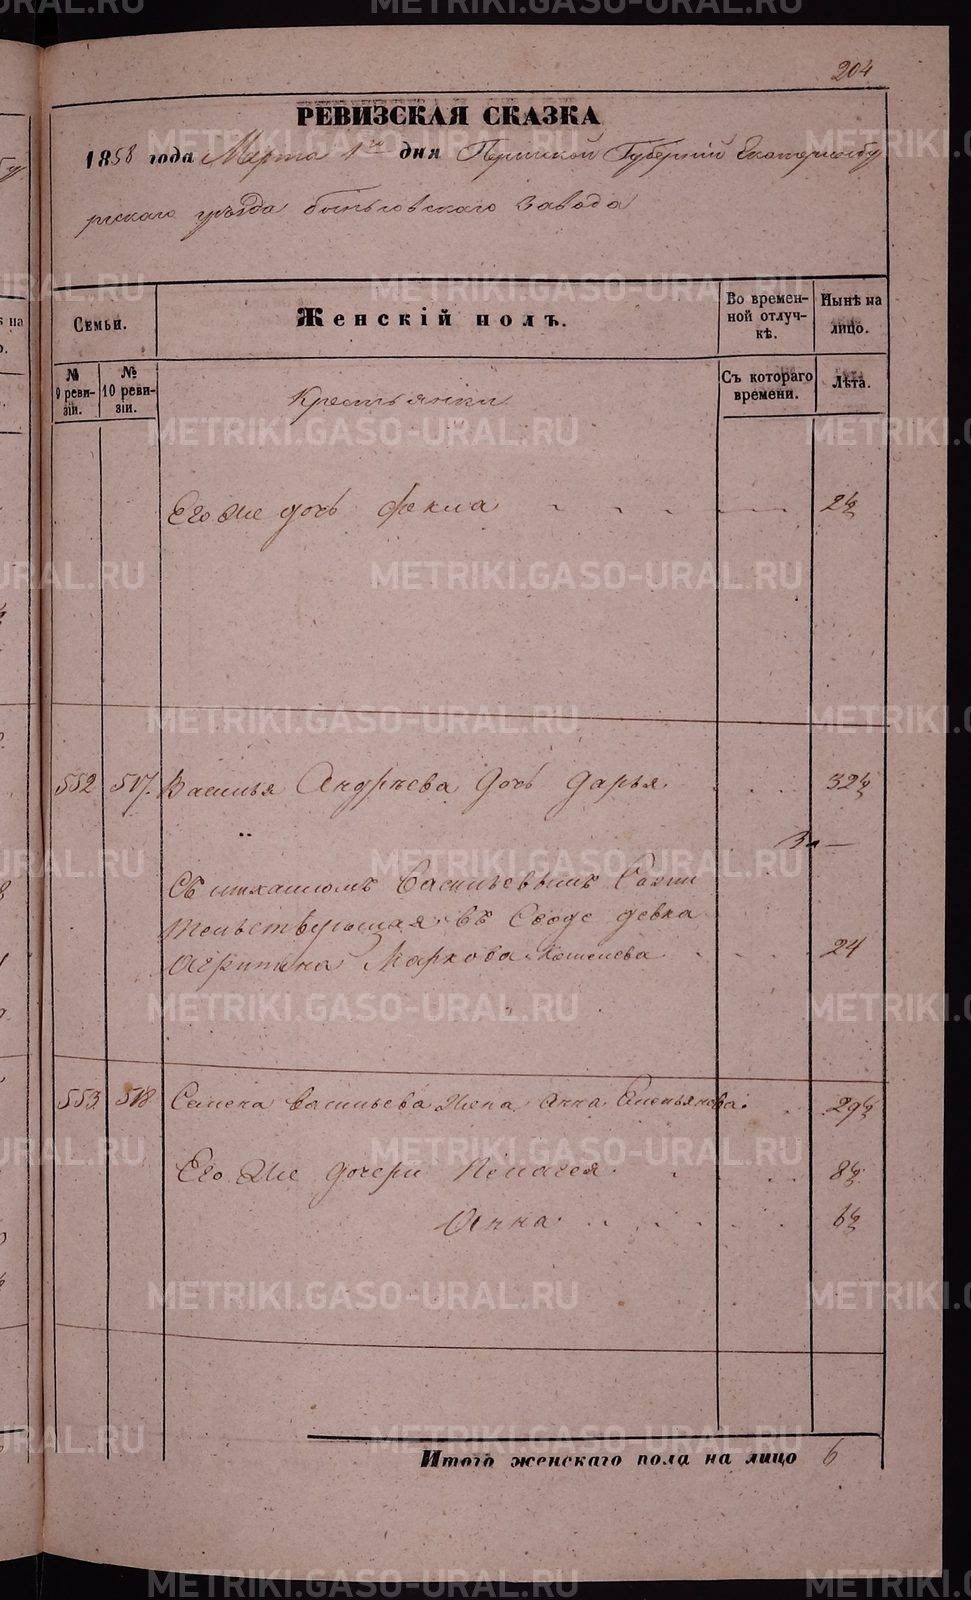 204
РЕВИЗСКАЯ СКАЗКА
1858 года Марта 1го дня Пермской Губерніи Екатеринбу
ргскаго уѣзда Быньговскаго Завода
Семьи.
Женскій полъ.
Во времен-
ной отлуч-
кѣ.
Нынѣ на
лицо.
№
9 реви-
зіи.
№
10 реви-
зіи.
Крестьянки
Съ котораго
времени.
Лѣта.
Его же дочь Фекла 2½
552 517. Василья Андрѣева дочь Дарья 32½
въ Сводѣ девка
Агрипина Маркова 24
553 518 Семена Васильева жена Анна Емельянова. 29½
Его же дочери Пелагея 8½
Анна 6½
Итого женскаго пола на лицо 6
METRIKI.GASO-URAL.RU